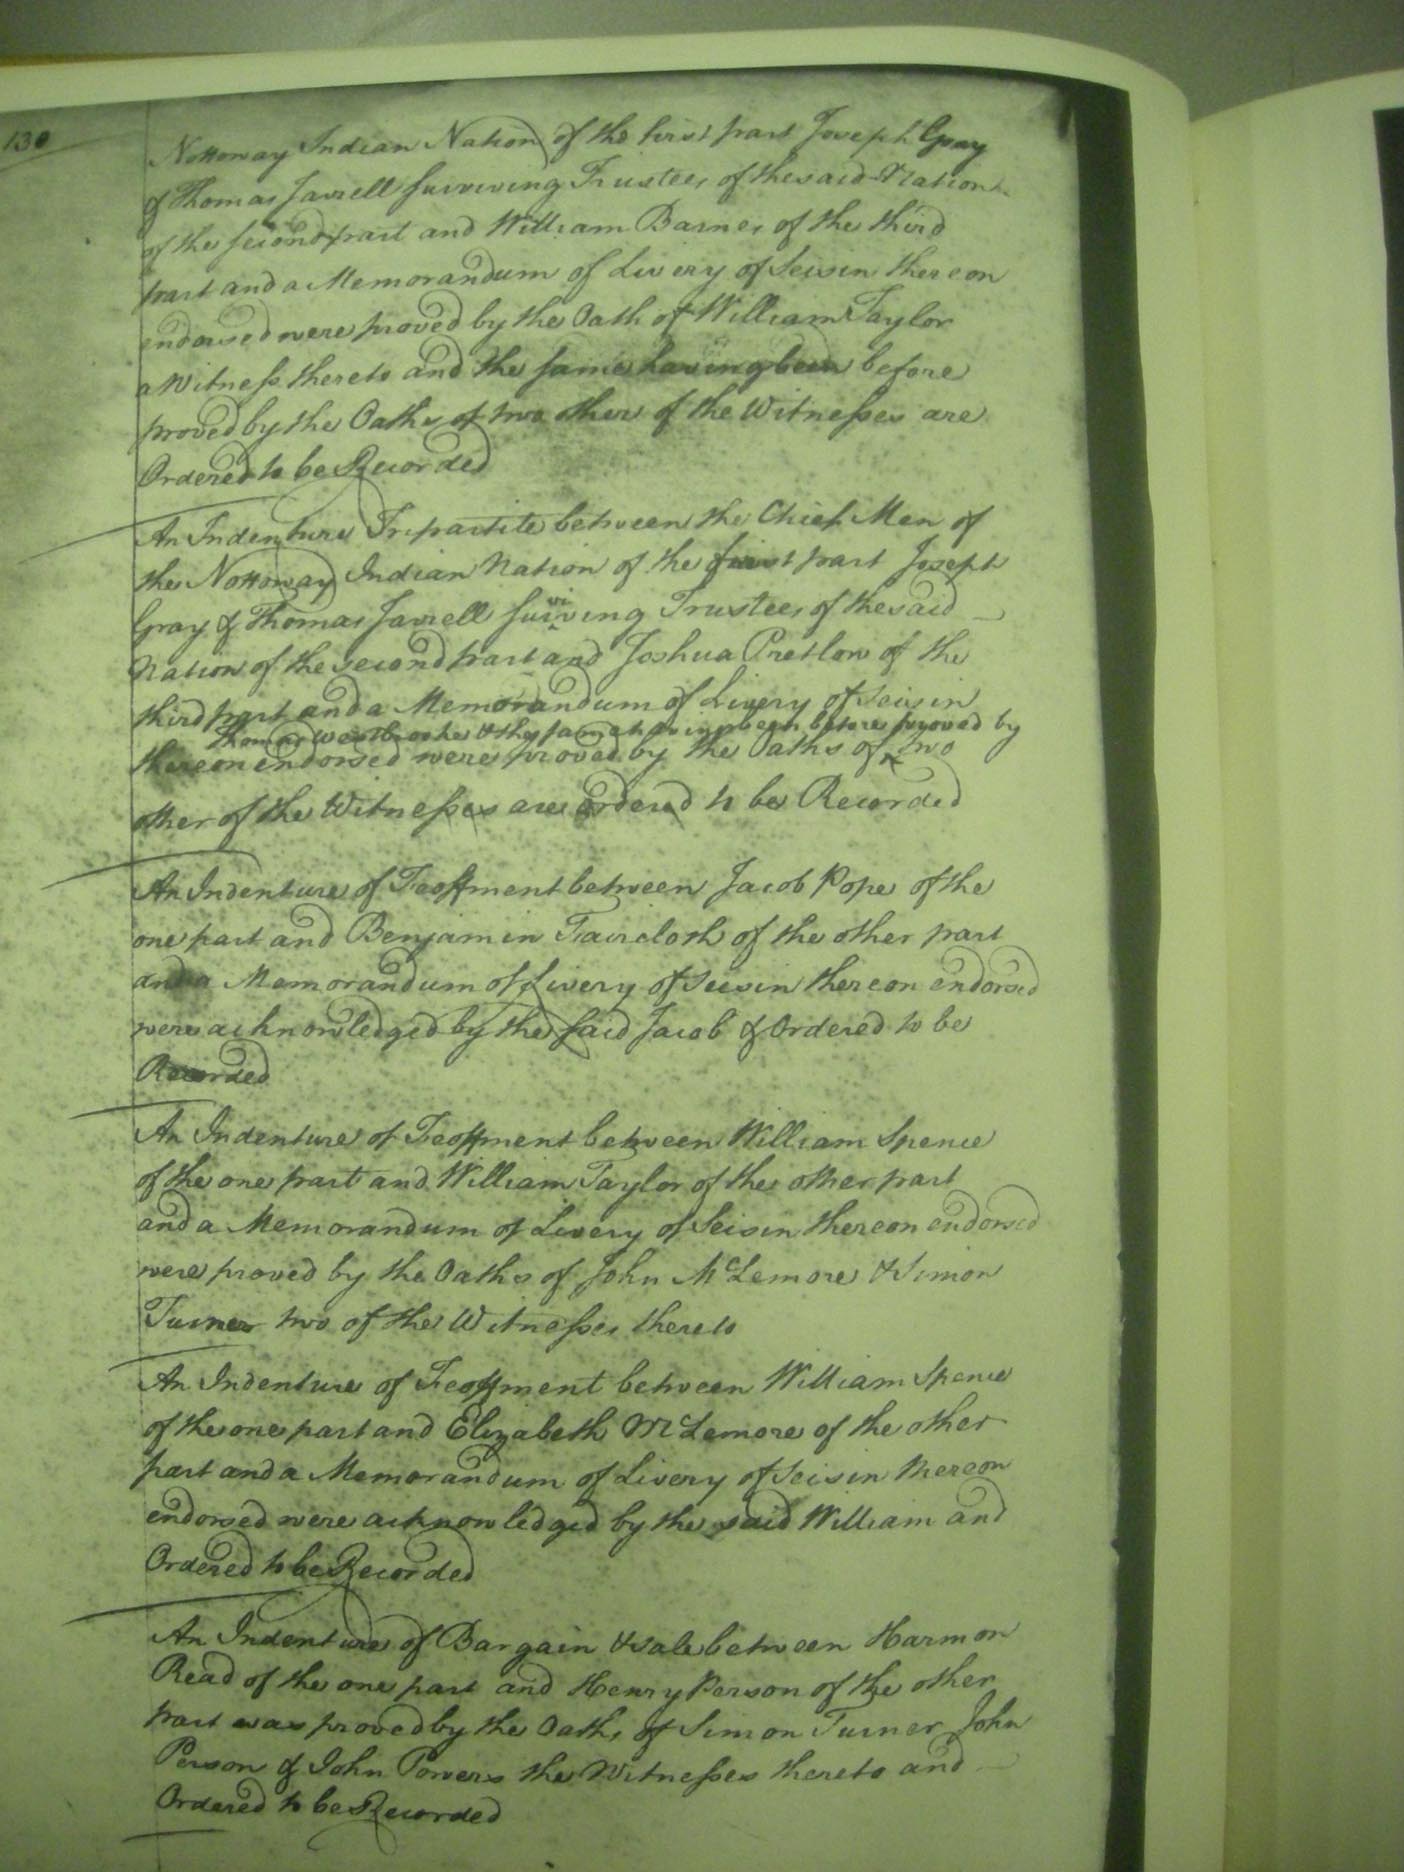 130
Nottoway Indian Nation of the first part Joseph Gray
& Thomas Jarrell surviving Trustees of the said Nation
of the second part and William Barnes of the third
part and a Memorandum of Livery of Seisin thereon
endorsed were proved by the Oath of William Taylor
a Witness thereto and the same having been before
proved by the Oaths of two other of the Witnesses are
Ordered to be Recorded
An Indenture Tripartite between the Chief Men of
the Nottoway Indian Nation of the first part Joseph
Gray & Thomas Jarrell surviving Trustees of the said
Nation of the second part and Joshua Pretlow of the
third part and a Memorandum of Livery of Seisin
Thomas Westbrooke & the same having been before proved by
thereon endorsed were proved by the Oaths of ^ two
other of the Witnesses are ordered to be Recorded
An Indenture of Feoffment between Jacob Pope of the
one part and Benjamin Faircloth of the other part
and a Memorandum of Livery of Seisin thereon endorsed
were acknowledged by the said Jacob & Ordered to be
Recorded
An Indenture of Feoffment between William Spence
of the one part and William Taylor of the other part
and a Memorandum of Livery of Seisin thereon endorsed
were proved by the Oaths of John McLemore & Simon
Turner two of the Witnesses thereto
An Indenture of Feoffment between William Spence
of the one part and Elizabeth McLemore of the other
part and a Memorandum of Livery of Seisin thereon
endorsed were acknowledged by the said William and
Ordered to be Recorded
An Indenture of Bargain & sale between Harmon
Read of the one part and Henry Person of the other
part was proved by the Oaths of Simon Turner John
Person & John Powers the Witnesses thereto and
Ordered to be Recorded